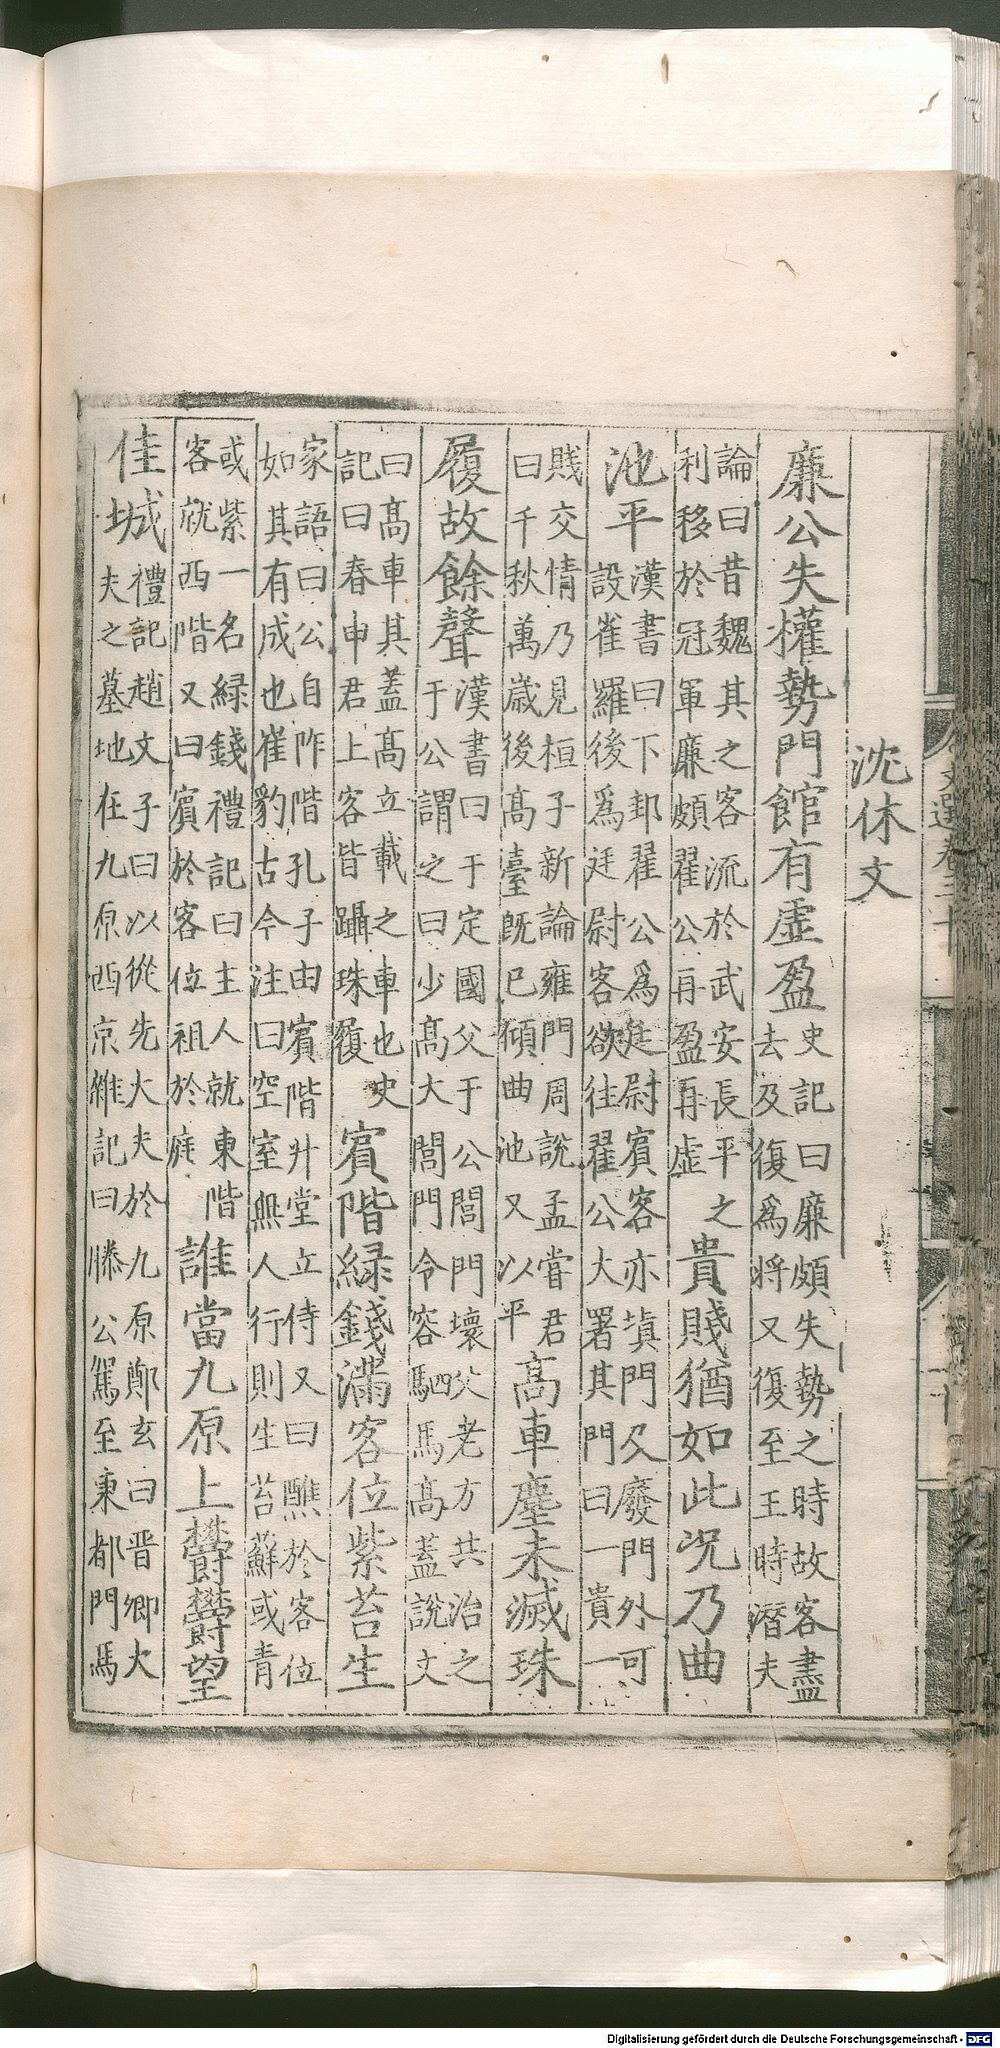 文選卷三十
沈休文
廉公失權勢門館有虛盈
史記曰廉頗失勢之時故客盡
去及復爲將又復至王時潛夫
論曰昔魏其之客流於武安長平之
利移於冠軍廉頗翟公再盈再虛
貴賤猶如此況乃曲
池平
漢書曰下邽翟公爲廷尉賓客亦塡門及廢門外可
設雀羅後爲廷尉客欲往翟公大署其門曰一貴一
賤交情乃見桓子新論雍門周說孟嘗君
曰千秋萬歲後高臺旣已傾曲池又以平
高車塵未滅珠
履故餘聲
漢書曰于定國父于公閭門壞父老方共治之
于公謂之曰少高大閭門令容駟馬高蓋說文
曰高車其蓋高立載之車也史
記曰春申君上客皆躡珠履
賓階緑錢滿客位紫苔生
家語曰公自阼階孔子由賓階升堂立侍又曰醮於客位
如其有成也崔豹古今注曰空室無人行則生苔蘚或青
或紫一名緑錢禮記曰主人就東階
客就西階又曰賓於客位祖於庭
誰當九原上鬱鬱望
佳城
禮記趙文子曰以從先大夫於九原鄭玄曰晉卿大
夫之墓地在九原西京雜記曰滕公駕至東都門馬
Digitalisierung gefördert durch die Deutsche Forschungsgemeinschaft - DFG